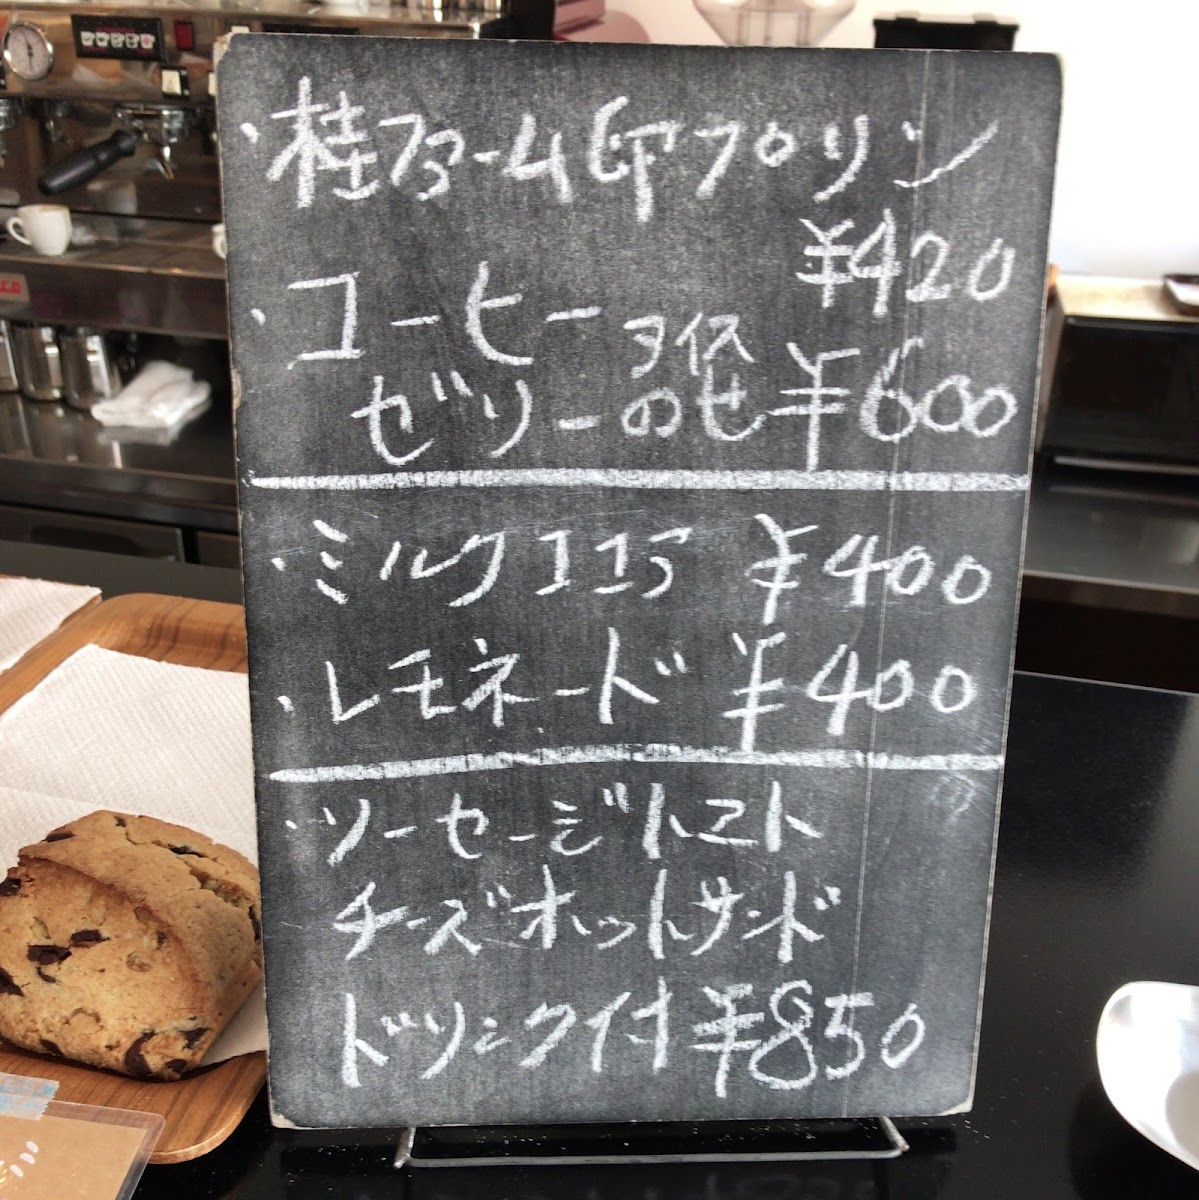 ・桂ファーム印プリン
¥420
・コーヒー
ゼリー
のせ ¥600
・ミルクココア ¥400
・レモネード ¥400
・ソーセージトマト
チーズホットサンド
ドリンク付 ¥850